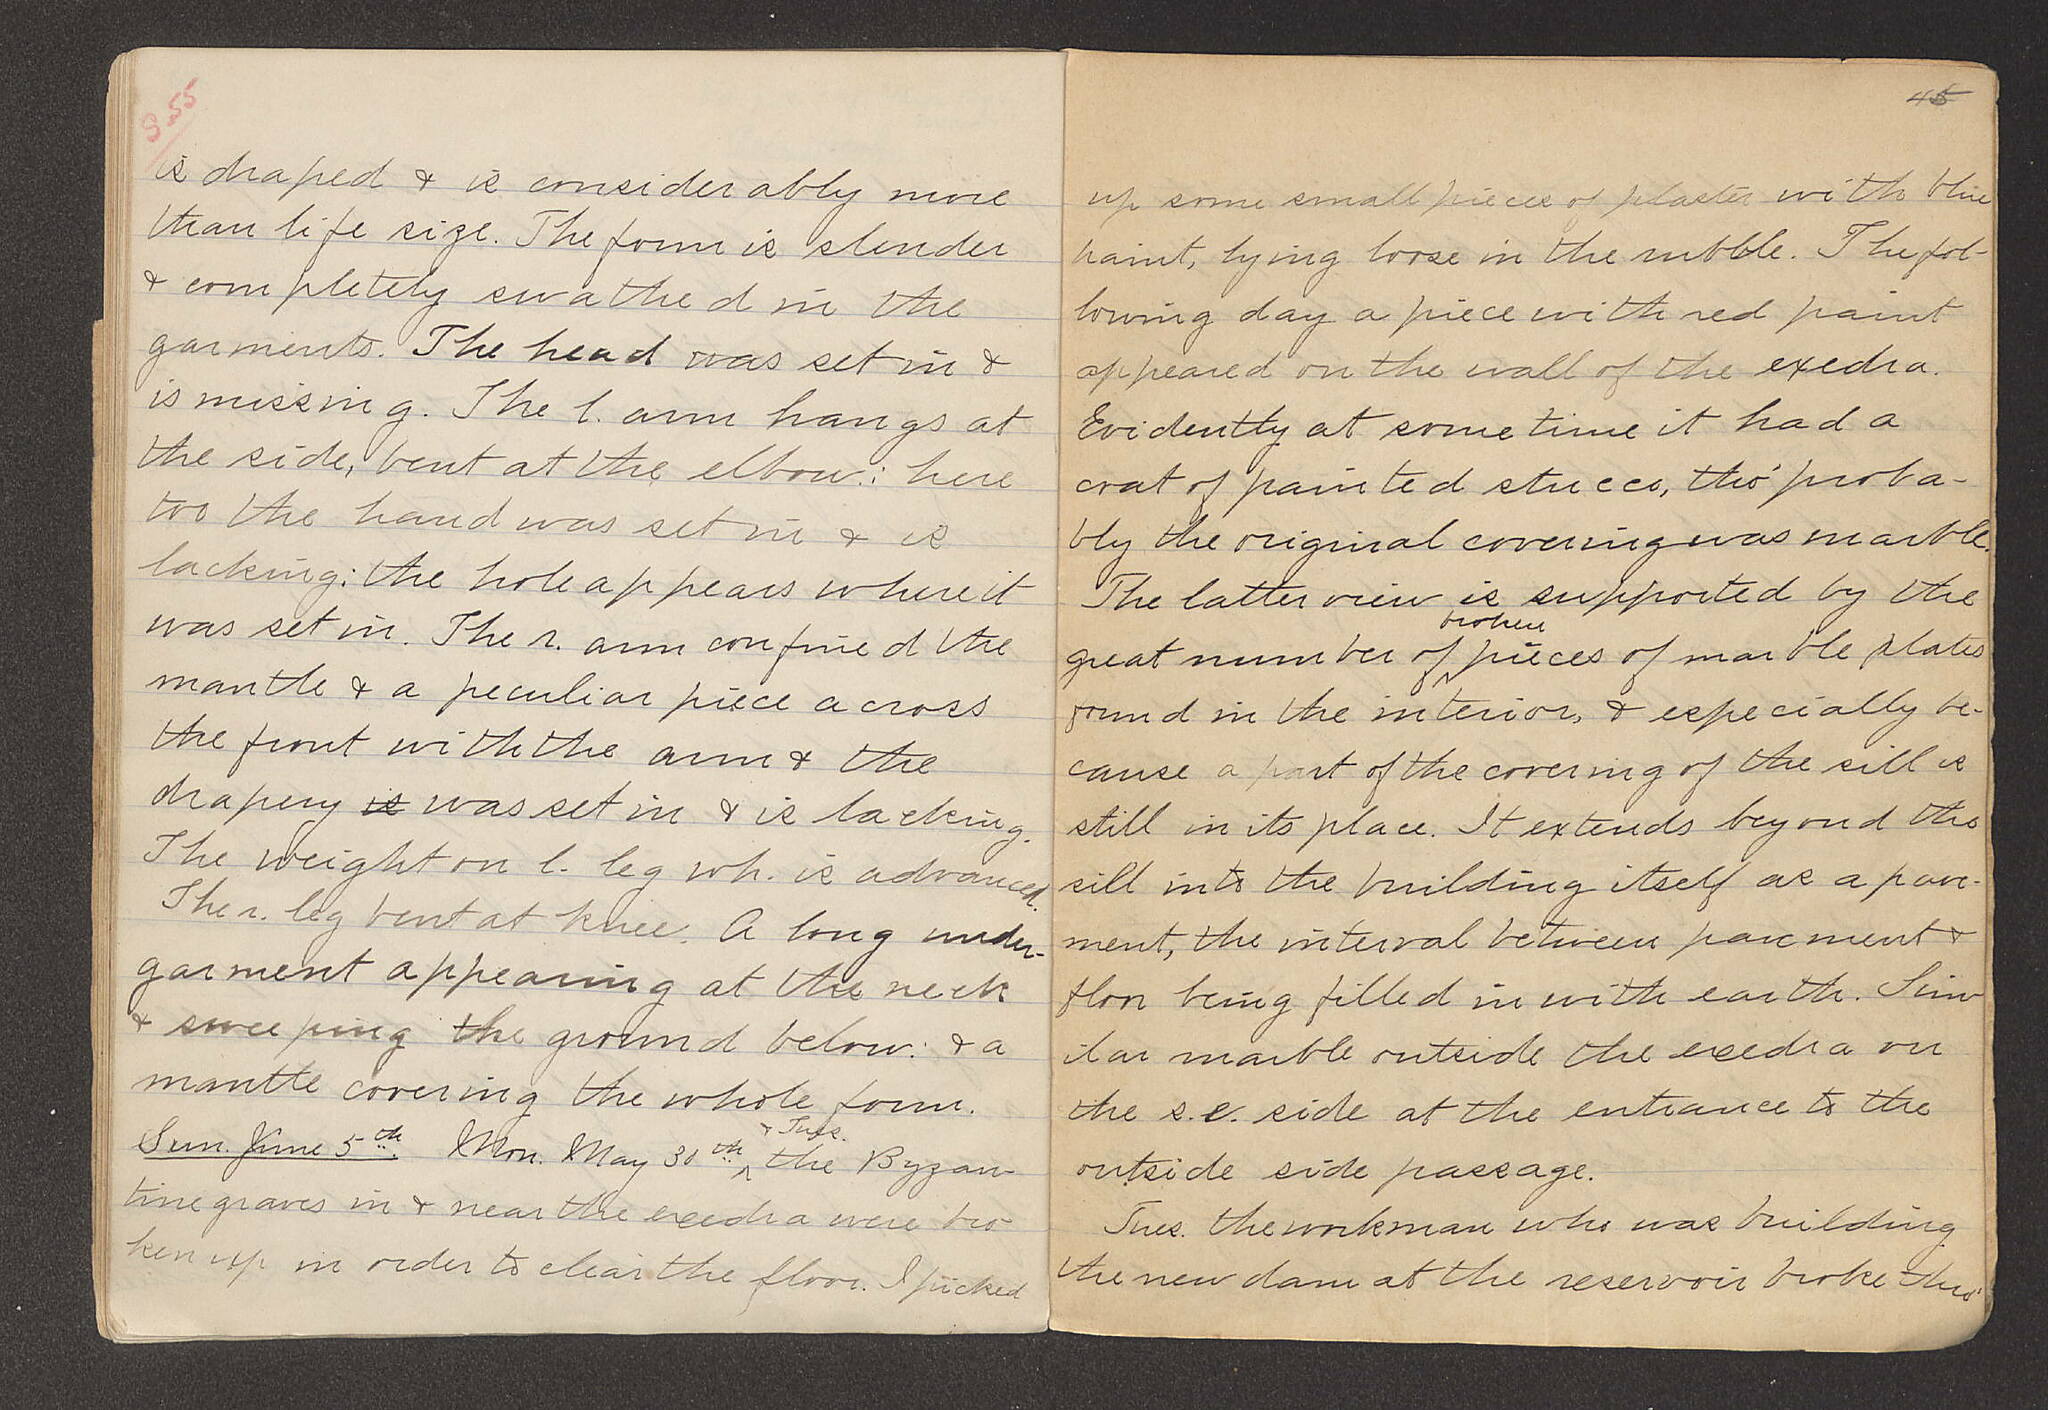 S 55
is draped & is considerably more
than life size. The form is slender
& completely swathed in the
garments. The head was set in &
is missing. The l. arm hangs at
the side, bent at the elbow: here
too the hand was set in & is
lacking: the hole appears where it
was set in. The r. arm confined the
mantle & a peculiar piece across
the front with the arm & the
drapery is was set in & is lacking.
The weight on l. leg wh. is advanced.
The r. leg bent at knee. A long under-
garment appearing at the neck
& sweeping the ground below: & a
mantle covering the whole form.
& Tues.
Sun. June 5th. Mon. May 30th the Byzan-
tine graves in & near the exedra were bro-
ken up in order to clear the floor. I picked
45
up some small pieces of plaster with blue
paint, lying loose in the rubble. The fol-
lowing day a piece with red paint
appeared on the wall of the exedra.
Evidently at some time it had a
coat of painted stucco, tho' proba-
bly the original covering was marble.
The latter view is supported by the
broken
great number of pieces of marble plates
found in the interior, & especially be-
cause a part of the covering of the sill is
still in its place. It extends beyond the
sill into the building itself as a pave-
ment, the interval between pavement &
floor being filled in with earth. Sim
ilar marble outside the exedra on
the s.e. side at the entrance to the
outside side passage.
Tues. the workman who was building
the new dam at the reservoir broke thro'